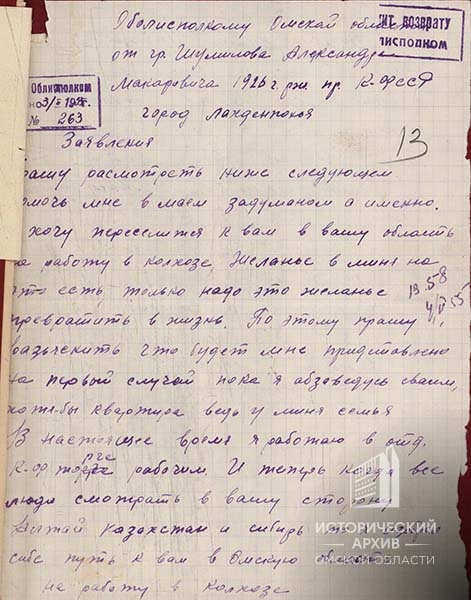 Облисполкому Омской области
от гр. Шумилова Александра
Макаровича 1926 г. рж. пр. К-ФССР
город Лахденпохья
ИТ ВОЗВРАТУ
ИСПОЛКОМ
Облисполком
№ 263
13
Заявления
рашу расмотрость ниже следующем
омочь мне в маем задуманом а именно.
хочу переселится к вам в вашу область
на работу в колхозе, желанье в миня на
это есть, только надо это желанье
превратить в жизнь. По этому прашу
разьеснить что будет мне придставлено
на первый случай пока я абзаведусь сваим,
хотя-бы квартира ведь у миня семья
В настоящее время я работаю в отд.
рабочим. И теперь когда все
люди смотрать в вашу сторону
Алтай казахстан и сибирь
себе путь к вам в Омскую област
на работу в колхозе
ИСТОРИЧЕСКИЙ
АРХИВ
ОМСКОЙ ОБЛАСТИ